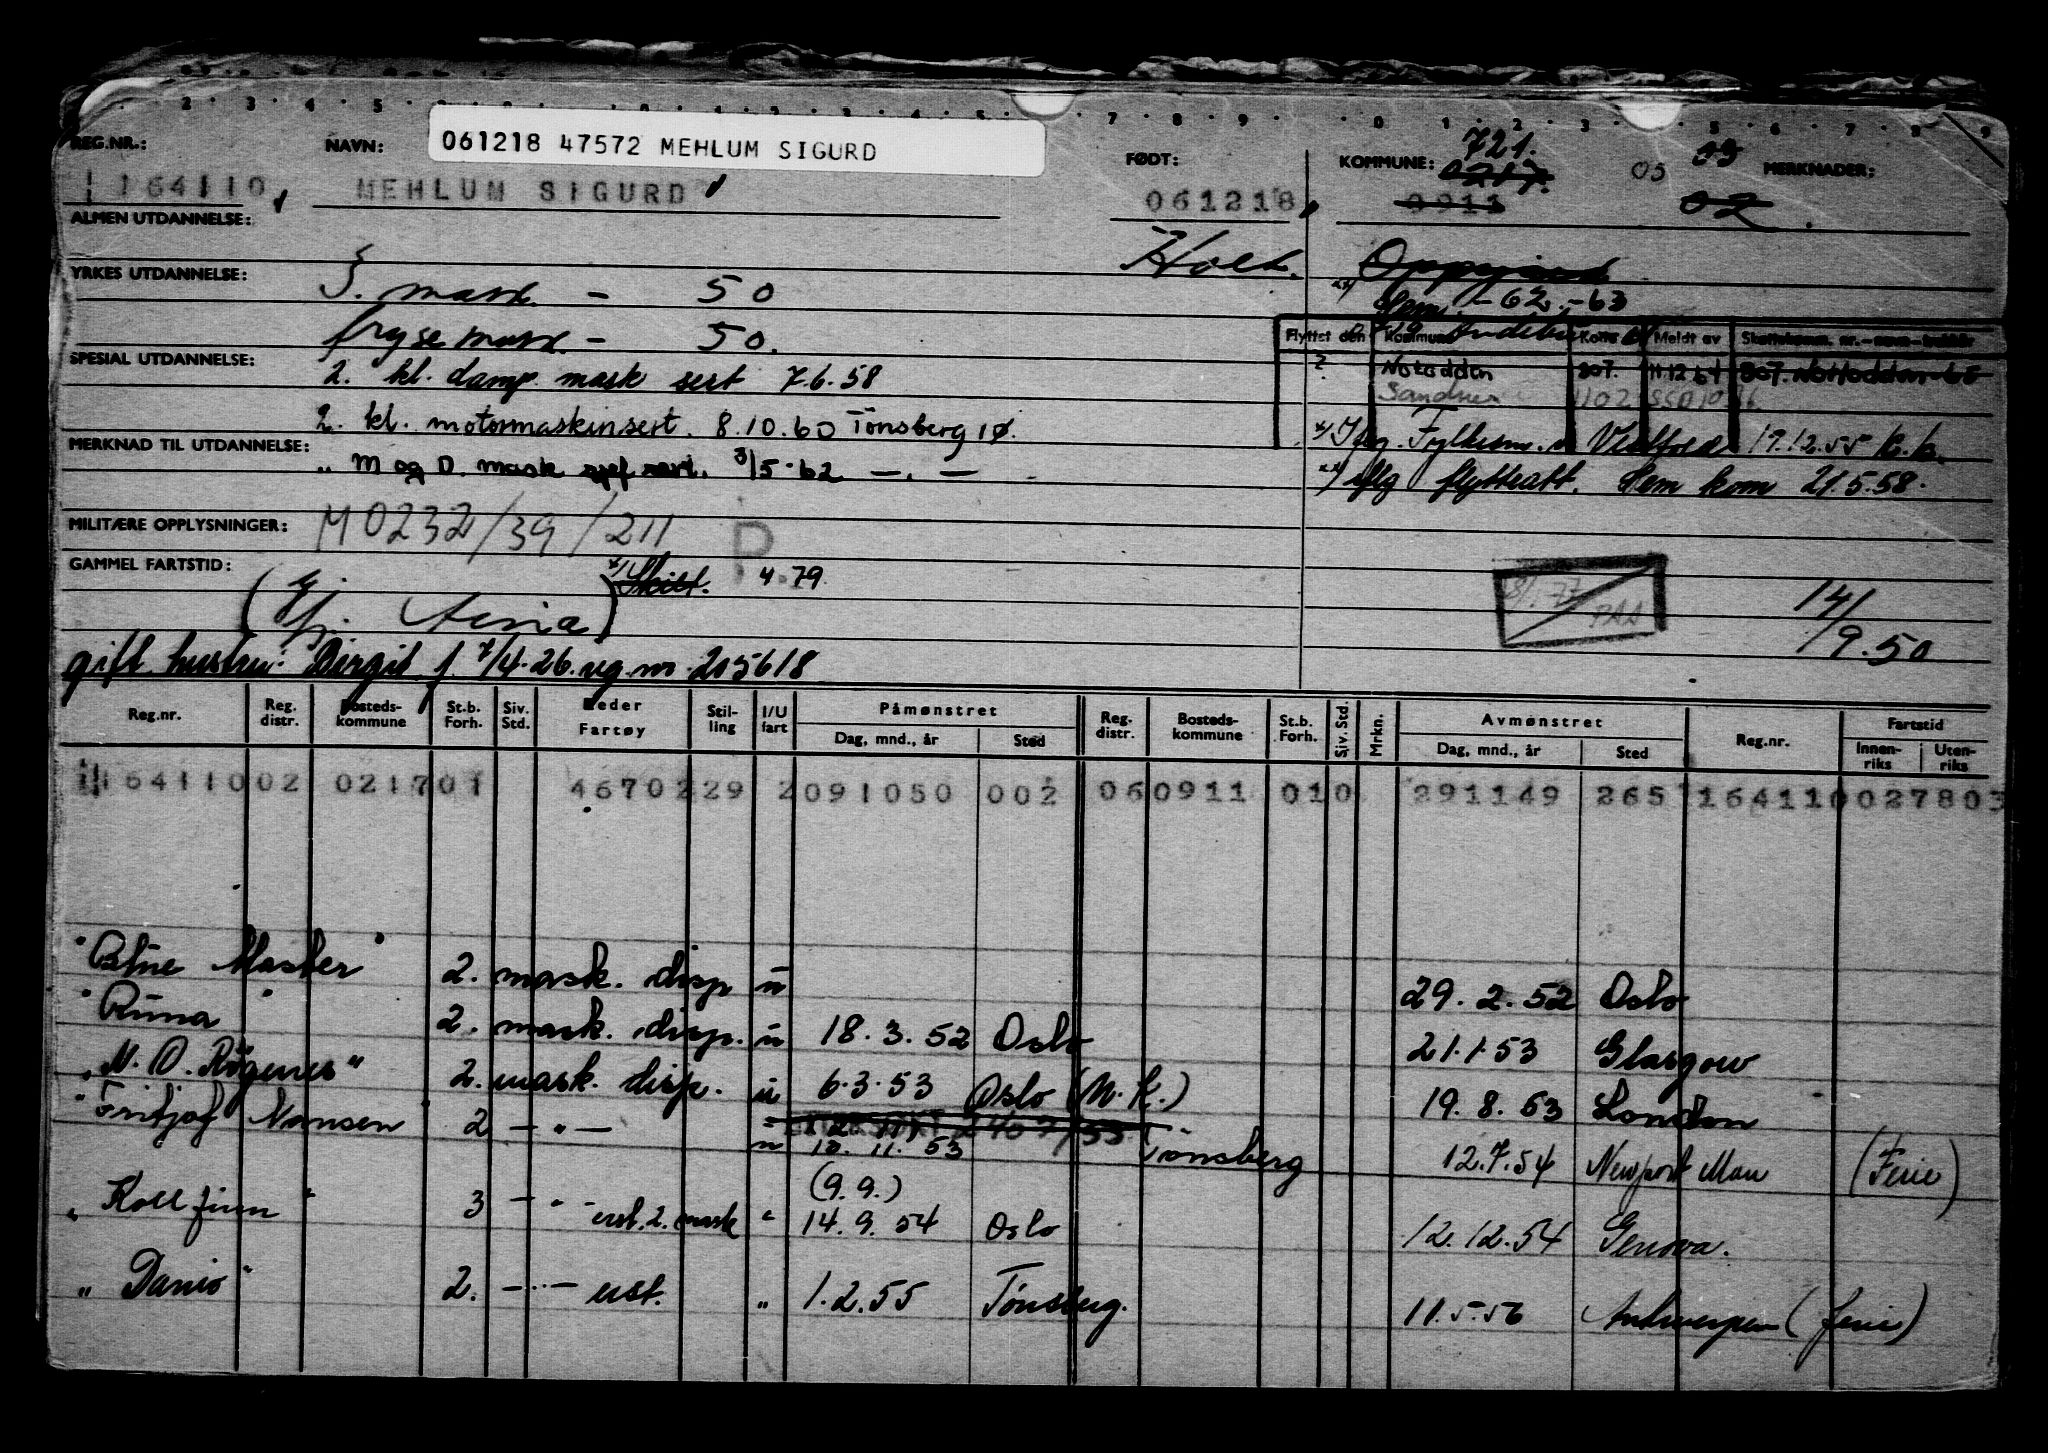 061218 47572 MEHLUM SIGURD
REG.NR.: NAVN: FØDT: KOMMUNE: 721. 0217. 05 03 MERKNADER:
164110 MEHLUM SIGURD 061218 0911 02
ALMEN UTDANNELSE:
Holt.
YRKES UTDANNELSE: mask. - 50
Sem. - 62. - 63
fryse mask. - 50.
Flyttet den Kommune Kolle Meldt av
SPESIAL UTDANNELSE: 2. kl. damp. mask sert 7.6.58
? Notodden 807. 11 12 64 807. Notodden
2. kl. motormaskinsert. 8.10.60 Tönsberg 1Ø.
1102
MERKNAD TIL UTDANNELSE: " M og D. mask sjef sert. 3/5-62 —.—
x/ Fylkesm. i Vestfold 17.12.55
xx/ iflg flytteatt. Sem kom 21.5.58.
MILITÆRE OPPLYSNINGER: M 0232/39/211 P
GAMMEL FARTSTID: 4.79
14/9.50
gift hustru: Birgit f. 7/4.26. reg. nr. 205618
Reg.nr. Reg. distr. Bosteds-kommune St.b. Forh. Siv. Std. Reder Fartøy Stil-ling I/U fart Påmønstret Dag, mnd., år Sted Reg. distr. Bosteds-kommune St.b. Forh. Siv. Std. Mrkn. Avmønstret Dag, mnd., år Sted Reg.nr. Fartstid Innen-riks Uten-riks
164110 02 0217 01 46702 29 2 091050 002 06 0911 010 291149 265 164110 027803
"Blue Master" 2. mask. disp u 29. 2. 52 Oslo
"Runa" 2. mask. disp. u 18. 3. 52 Oslo 21.1.53 Glasgow
"N. O. Røgenes" 2. mask. disp. u 6.3.53 Oslo (N.K.) 19. 8. 53 London
"Fritjof Nansen" 2 — " — u 10. 11. 53 Tönsberg 12.7.54 Newport Mon (Ferie)
(9.9.)
"Kollfinn" 3 — " — 2. mask " 14. 9. 54 Oslo 12. 12. 54 Genova.
" Danio " 2. — " — " 1.2.55 Tönsberg. 11.5.56 Antwerpen (ferie)